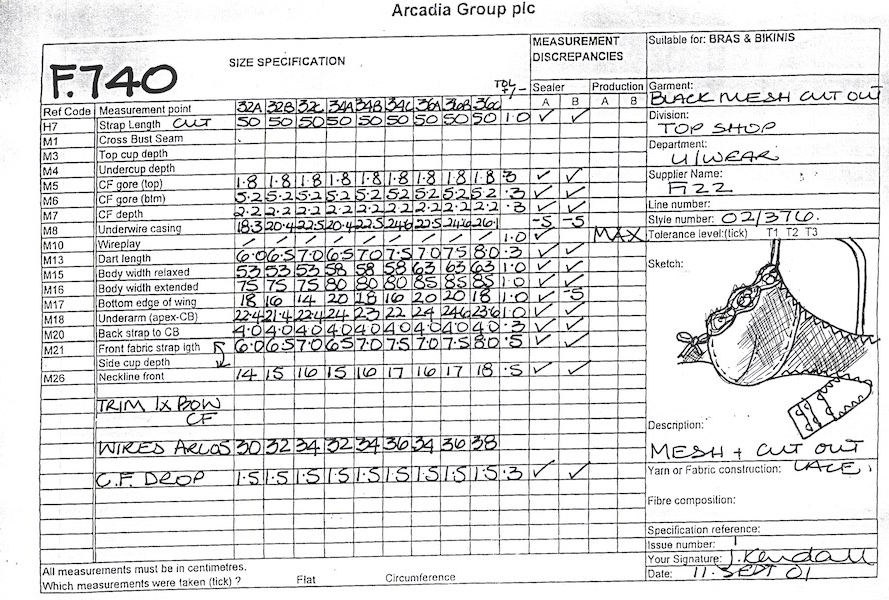 Arcadia Group plc
F.740
SIZE SPECIFICATION
MEASUREMENT DISCREPANCIES
Suitable for: BRAS & BIKINIS
TOL +/-
Sealer Production
Garment: BLACK MESH CUT OUT
Ref Code Measurement point 32A 32B 32C 34A 34B 34C 36A 36B 36C A B A B
H7 Strap Length CUT 50 50 50 50 50 50 50 50 50 1.0 ✓ ✓
Division: TOP SHOP
M1 Cross Bust Seam
M3 Top cup depth
Department: U/WEAR
M4 Undercup depth
M5 CF gore (top) 1.8 1.8 1.8 1.8 1.8 1.8 1.8 1.8 1.8 .3 ✓ ✓
Supplier Name: FIZZ
M6 CF gore (btm) 5.2 5.2 5.2 5.2 5.2 5.2 5.2 5.2 5.2 .3 ✓ ✓
Line number:
M7 CF depth 2.2 2.2 2.2 2.2 2.2 2.2 2.2 2.2 2.2 .3 ✓ ✓
Style number: 02/376.
M8 Underwire casing 18.3 20.4 22.5 20.4 22.5 24.6 22.5 24.6 26.1 -5 -5
M10 Wireplay / / / / / / / / / 1.0 ✓ MAX
Tolerance level:(tick) T1 T2 T3
M13 Dart length 6.0 6.5 7.0 6.5 7.0 7.5 7.0 7.5 8.0 .3 ✓ ✓
Sketch:
M15 Body width relaxed 53 53 53 58 58 58 63 63 63 1.0 ✓ ✓
M16 Body width extended 75 75 75 80 80 80 85 85 85 1.0 ✓ ✓
M17 Bottom edge of wing 18 16 14 20 18 16 20 20 18 1.0 ✓ -5
M18 Underarm (apex-CB) 22.4 21.4 22.4 24 23 22 24 24.6 23.6 1.0 ✓ ✓
M20 Back strap to CB 4.0 4.0 4.0 4.0 4.0 4.0 4.0 4.0 4.0 .3 ✓ ✓
M21 Front fabric strap lgth 6.0 6.5 7.0 6.5 7.0 7.5 7.0 7.5 8.0 .5 ✓ ✓
Side cup depth
M26 Neckline front 14 15 16 15 16 17 16 17 18 .5 ✓ ✓
TRIM 1X BOW
CF
Description:
WIRED 30 32 34 32 34 36 34 36 38
MESH + CUT OUT
LACE.
C.F. DROP 1.5 1.5 1.5 1.5 1.5 1.5 1.5 1.5 1.5 .3 ✓ ✓
Yarn or Fabric construction:
Fibre composition:
Specification reference:
Issue number: 1
All measurements must be in centimetres.
Your Signature: J. Kendall
Which measurements were taken (tick) ? Flat Circumference
Date: 11. SEPT 01